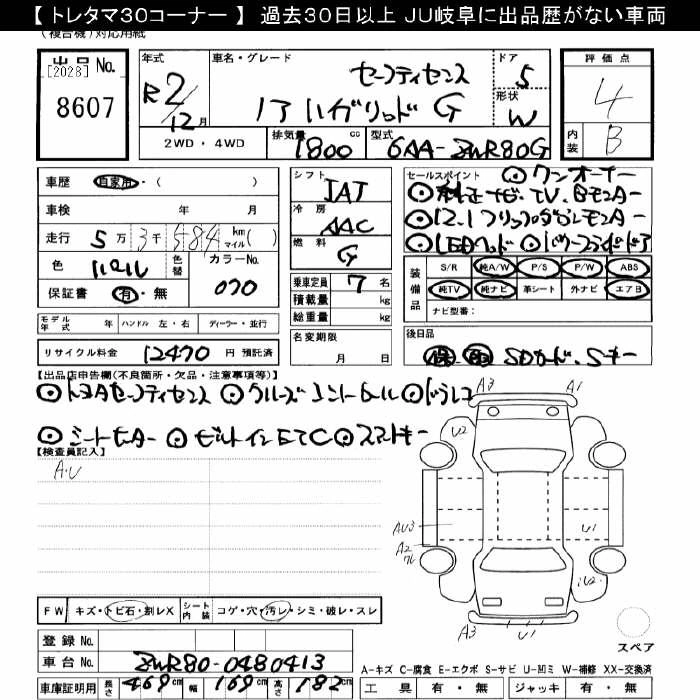 【トレタマ30コーナー】 過去30日以上 JU岐阜に出品歴がない車両
(複合機)対応用紙
出品 No.
[2028]
8607
年式
R2/12月
車名・グレード
セーフティセンス
ノア ハイブリッド G
ドア
5
形状
W
評価点
4
内装
B
2WD ・ 4WD
排気量 1800 cc
型式 6AA-ZWR80G
車歴 自家用・( )
車検 年 月
走行 5万3千584 km マイル( )
色 パール
色替
カラーNo. 070
保証書 有・無
シフト IAT
冷房 AAC
燃料 G
乗車定員 7名
積載量 kg
総重量 kg
セールスポイント ⊙ワンオーナー
⊙純正ナビ・TV・Bモニター
⊙12.1フリップダウンモニター
⊙LEDヘッド ⊙パワースライドドア
装備品
S/R 純A/W P/S P/W ABS
純TV 純ナビ 革シート 外ナビ エアB
ナビ型番:
モデル年式 年 ハンドル 左・右 ディーラー・並行
名変期限 月 日
後日品
保 取 SDカード、Sキー
リサイクル料金 12470 円 預託済
【出品店申告欄(不良箇所・欠品・注意事項等)】
⊙トヨタセーフティセンス ⊙クルーズコントロール ⊙ドラレコ
⊙シートモケット ⊙ビルトインETC ⊙スマートキー
【検査員記入】
A.U
A3
A1
U2
AU3
A2
U1
U2
A3
U1
スペア
FW キズ・トビ石・割レX
シート内装 コゲ・穴・汚レ・シミ・破レ・スレ
登録 No.
車台 No. ZWR80-0480413
車庫証明用 長さ 469cm 幅 169cm 高さ 182cm
A-キズ C-腐食 E-エクボ S-サビ U-凹ミ W-補修 XX-交換済
工具 有・無 ジャッキ 有・無